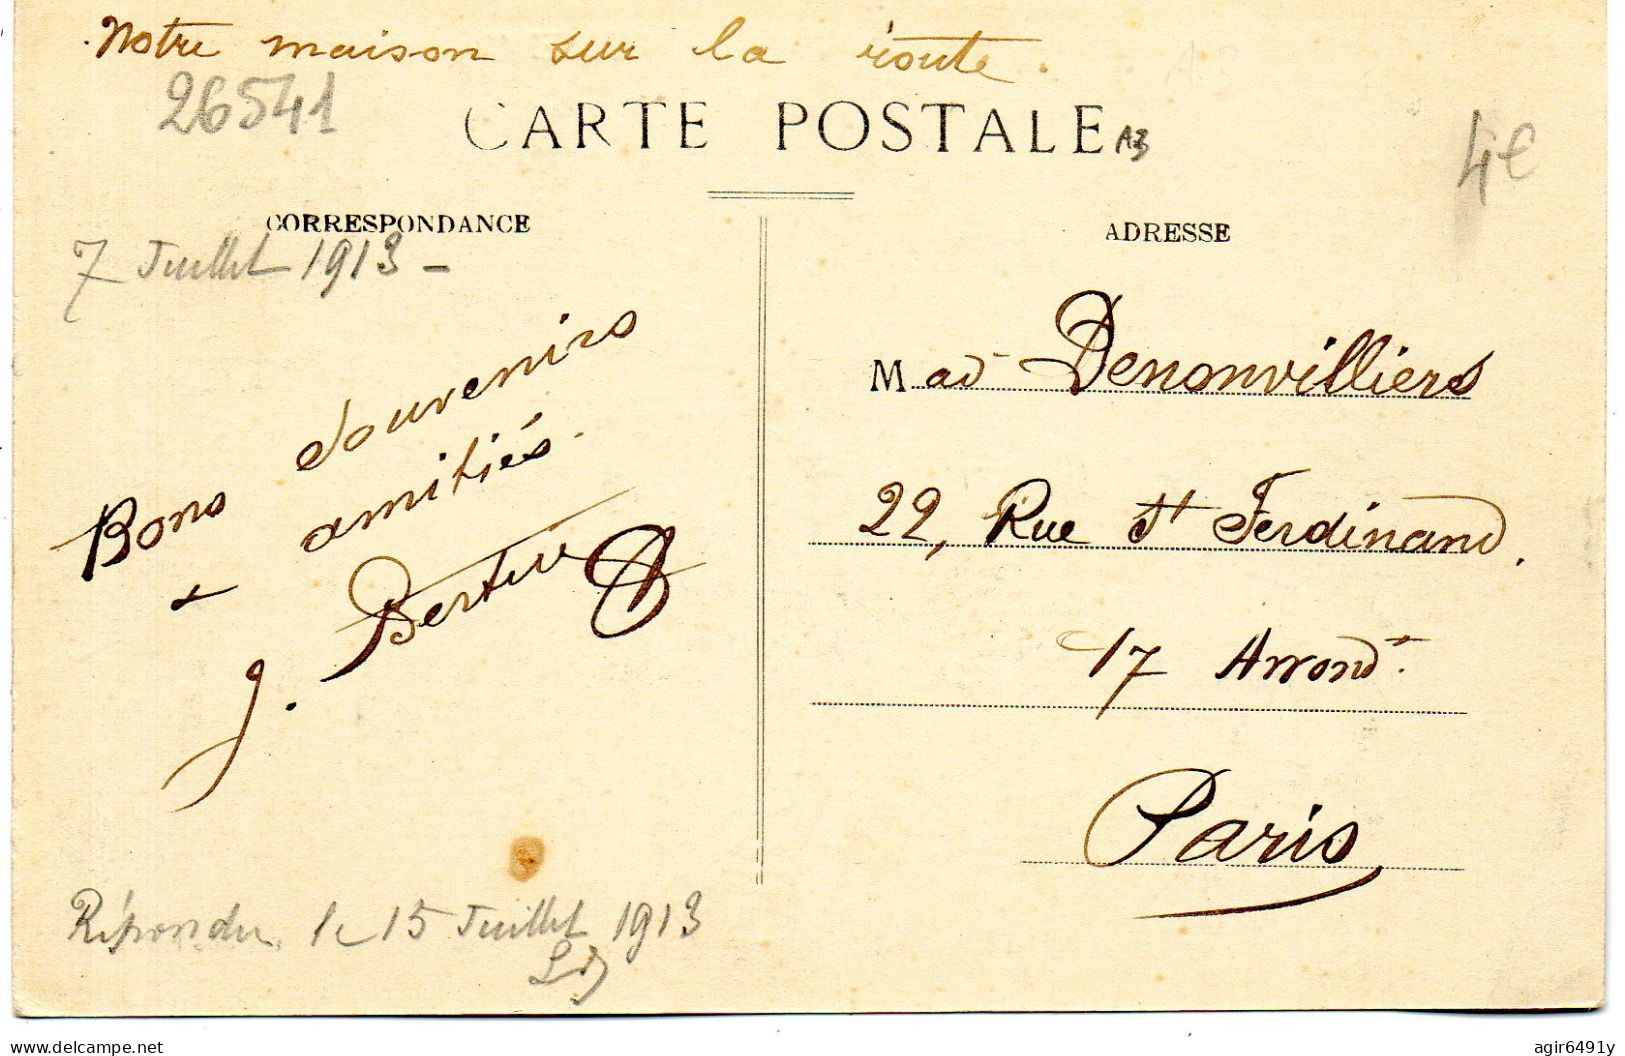 Notre maison sur la route.
26541
CARTE POSTALE
4€
CORRESPONDANCE
ADRESSE
7 Juillet 1913 -
Bons souvenirs
+ amitiés.
J.
Mad Denonvilliers
22, Rue St Ferdinand.
17 Arrondt.
Paris
Répondu le 15 Juillet 1913
www.delcampe.net
agir6491y